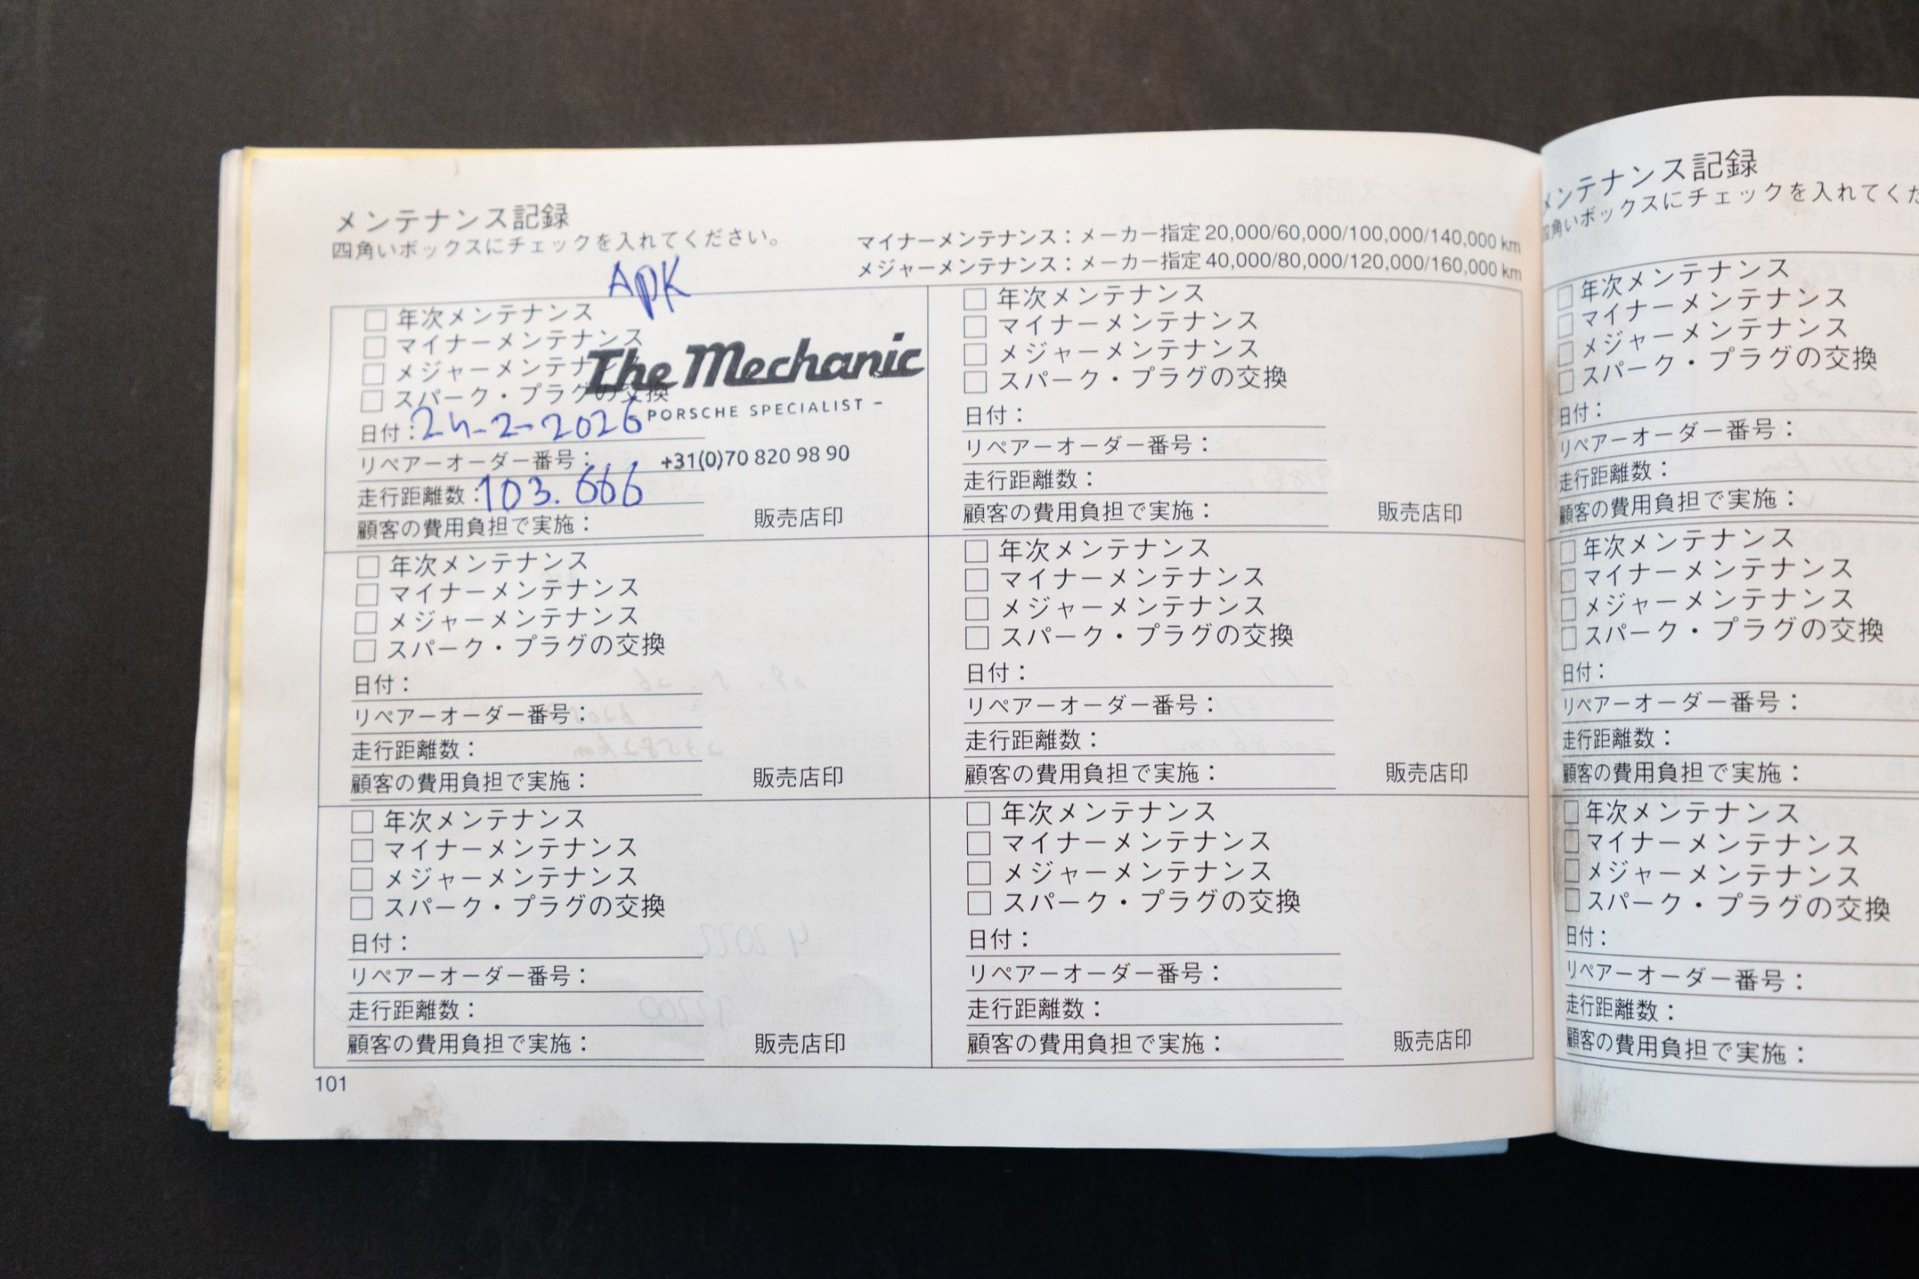 メンテナンス記録
四角いボックスにチェックを入れてください。
マイナーメンテナンス：メーカー指定 20,000/60,000/100,000/140,000 km
メジャーメンテナンス：メーカー指定 40,000/80,000/120,000/160,000 km
APK
年次メンテナンス
マイナーメンテナンス
メジャーメンテナンス
スパーク・プラグの交換
The Mechanic
PORSCHE SPECIALIST -
日付：24-2-2026
リペアーオーダー番号：
+31(0)70 820 98 90
走行距離数：103.666
顧客の費用負担で実施：
販売店印
年次メンテナンス
マイナーメンテナンス
メジャーメンテナンス
スパーク・プラグの交換
日付：
リペアーオーダー番号：
走行距離数：
顧客の費用負担で実施：
販売店印
年次メンテナンス
マイナーメンテナンス
メジャーメンテナンス
スパーク・プラグの交換
日付：
リペアーオーダー番号：
走行距離数：
顧客の費用負担で実施：
販売店印
年次メンテナンス
マイナーメンテナンス
メジャーメンテナンス
スパーク・プラグの交換
日付：
リペアーオーダー番号：
走行距離数：
顧客の費用負担で実施：
販売店印
年次メンテナンス
マイナーメンテナンス
メジャーメンテナンス
スパーク・プラグの交換
日付：
リペアーオーダー番号：
走行距離数：
顧客の費用負担で実施：
販売店印
年次メンテナンス
マイナーメンテナンス
メジャーメンテナンス
スパーク・プラグの交換
日付：
リペアーオーダー番号：
走行距離数：
顧客の費用負担で実施：
販売店印
101
メンテナンス記録
四角いボックスにチェックを入れてくだ
年次メンテナンス
マイナーメンテナンス
メジャーメンテナンス
スパーク・プラグの交換
日付：
リペアーオーダー番号：
走行距離数：
顧客の費用負担で実施：
年次メンテナンス
マイナーメンテナンス
メジャーメンテナンス
スパーク・プラグの交換
日付：
リペアーオーダー番号：
走行距離数：
顧客の費用負担で実施：
年次メンテナンス
マイナーメンテナンス
メジャーメンテナンス
スパーク・プラグの交換
日付：
リペアーオーダー番号：
走行距離数：
顧客の費用負担で実施：